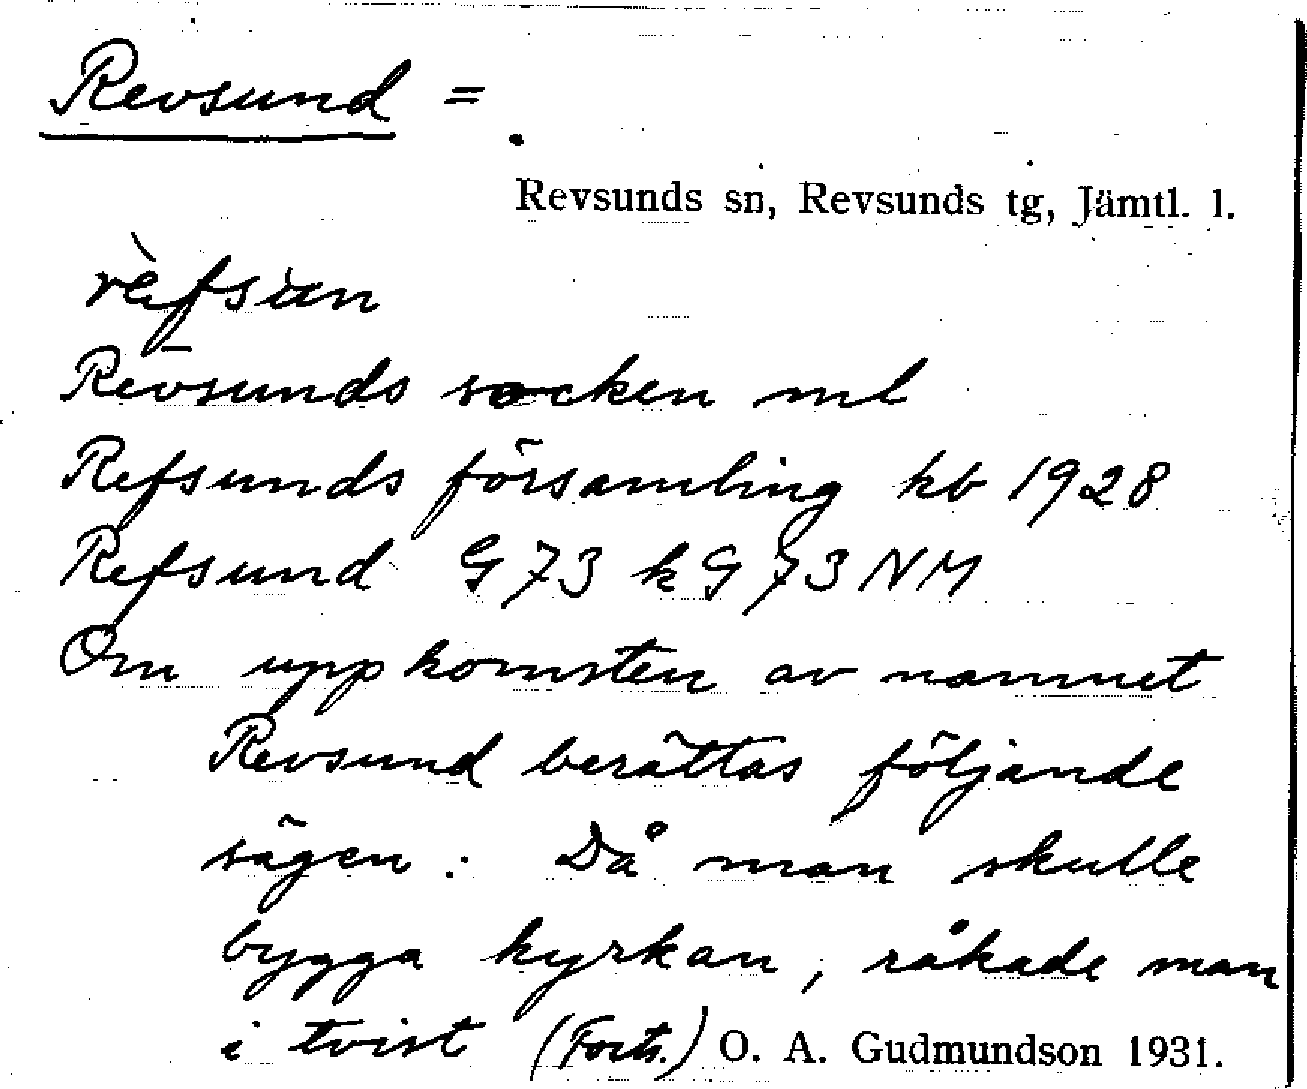 Revsund =
Revsunds sn, Revsunds tg, Jämtl. l.
rèfsun
Revsunds socken ml
Refsunds församling kb 1928
Refsund G 73 k G 73 NM
Om uppkomsten av namnet
Revsund berättas följande
sägen: Då man skulle
bygga kyrkan, råkade man
i tvist (Forts.) O. A. Gudmundson 1931.